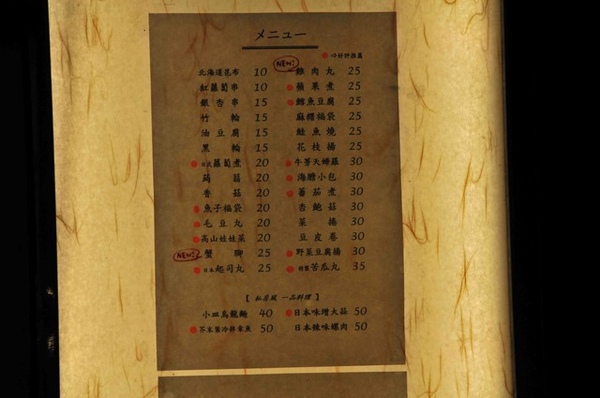 メニュー
口碑好評推薦
北海道昆布 10
紅蘿蔔串 10
銀杏串 15
竹輪 15
油豆腐 15
黑輪 15
蘿蔔煮 20
蒟蒻 20
香菇 20
魚子福袋 20
毛豆丸 20
高山娃娃菜 20
NEW! 蟹腳 25
日本起司丸 25
NEW! 雞肉丸 25
蘋果煮 25
鱈魚豆腐 25
麻糬福袋 25
鮭魚燒 25
花枝揚 25
牛蒡天婦羅 30
海膽小包 30
蕃茄煮 30
杏鮑菇 30
菜捲 30
豆皮卷 30
野菜豆腐揚 30
特製苦瓜丸 35
【 私房風 一品料理 】
小皿烏龍麵 40
芥末醬冷拌章魚 50
日本味增大蒜 50
日本辣味螺肉 50